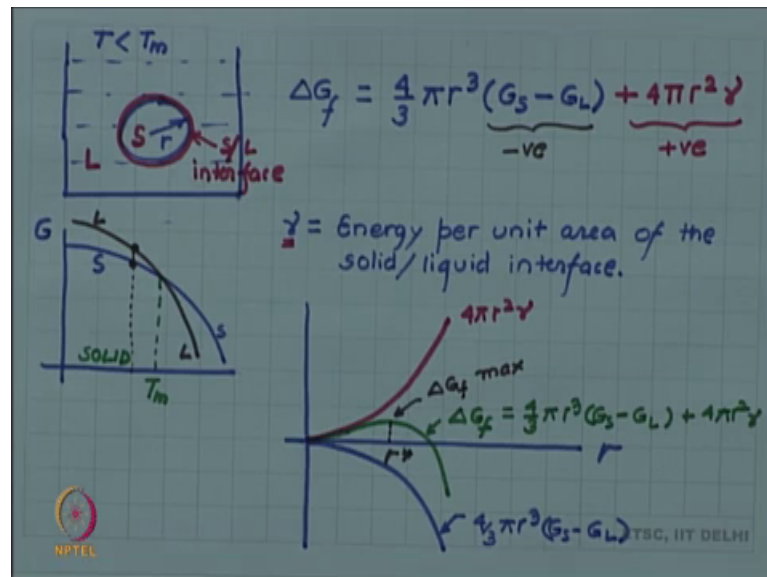 T < Tm
S
r
L
S/L
interface
ΔGf = 4/3 πr³ (Gs - GL) + 4πr²γ
-ve
+ve
G
L
S
SOLID
Tm
L
S
γ = Energy per unit area of the
solid/liquid interface.
4πr²γ
ΔGf max
ΔGf = 4/3 πr³(Gs - GL) + 4πr²γ
r*
r
4/3 πr³(Gs - GL)
TSC, IIT DELHI
NPTEL